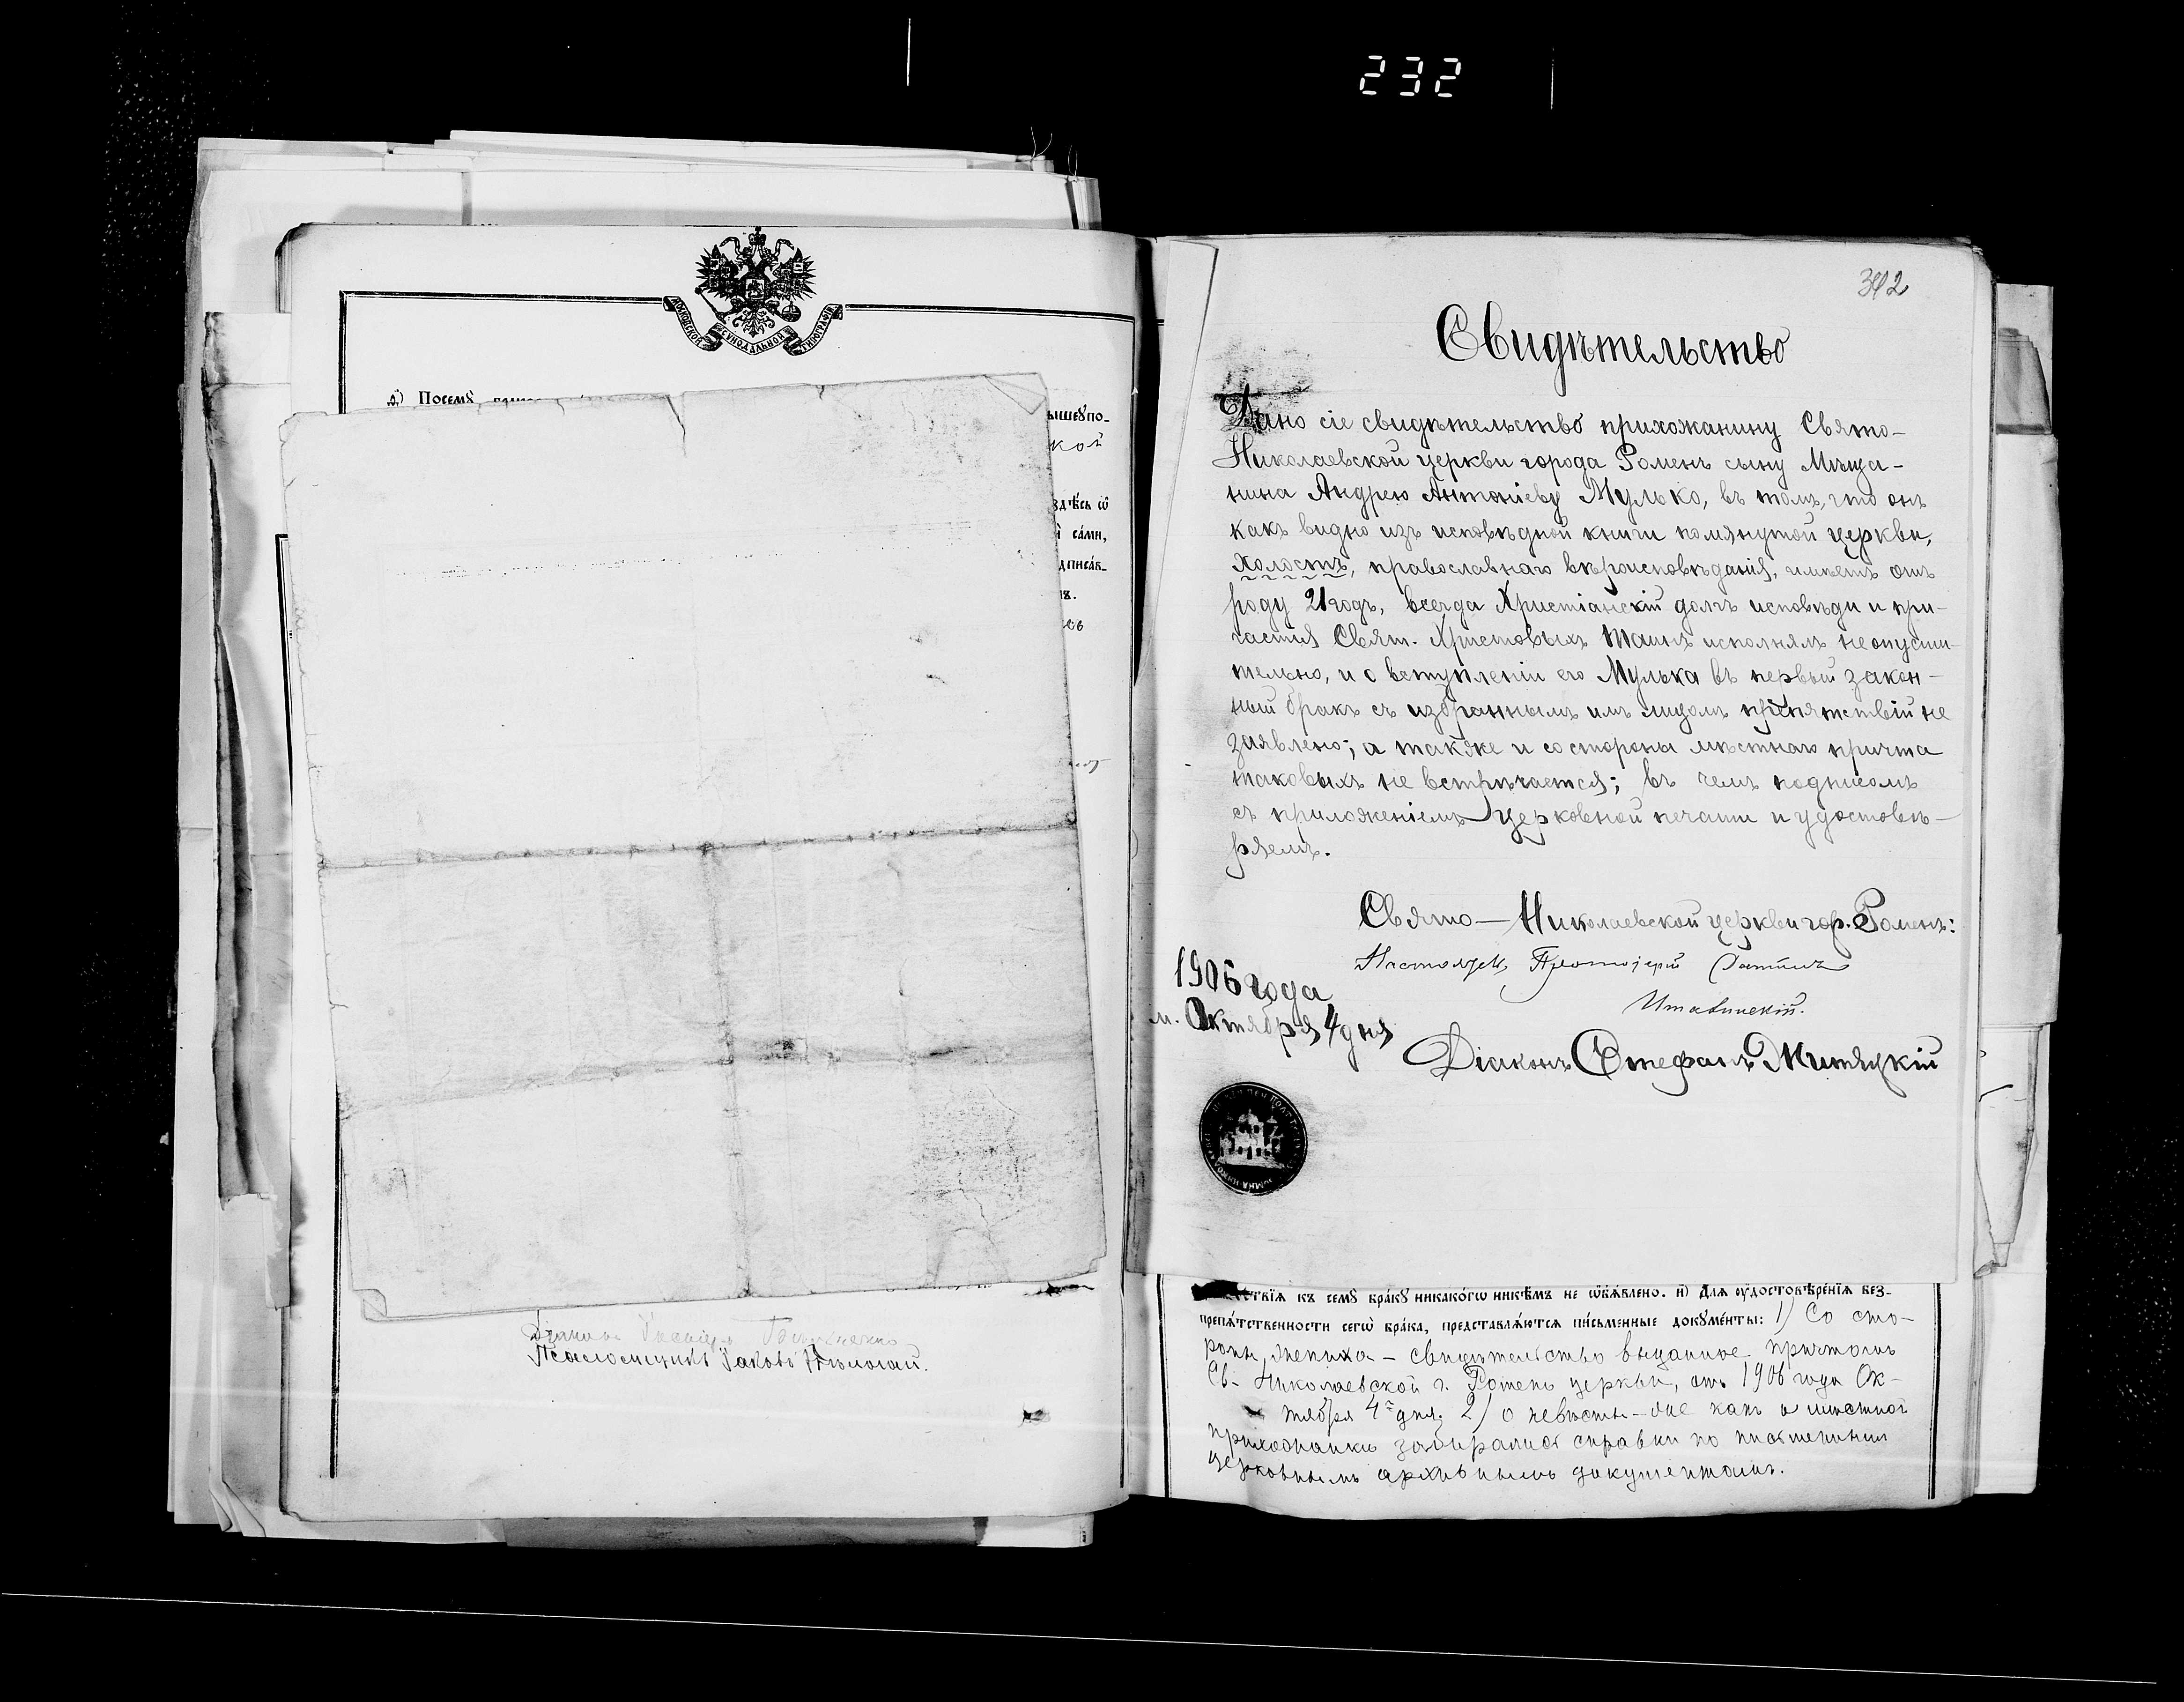 232
МОСКОВСКОЙ СѴНОДАЛЬНОЙ ТИПОГРАФІИ
д) Посемꙋ
ышеꙋпо-
кой
здѣсь ѿ
сáми,
342
Свидѣтельство
Дано сіе свидѣтельство прихожанину Свято-
Николаевской церкви города Роменъ сыну Мѣща-
нина Андрею Антоніеву Мулько, въ томъ, что онъ
какъ видно изъ исповѣдной книги помянутой церкви,
холостъ, православнаго вѣроисповѣданія, имѣетъ отъ
роду 21 годъ, всегда Христіанскій долгъ исповѣди и при-
частія Свят. Христовыхъ Таинъ исполнялъ неопусти-
тельно, и о вступленіи его Мулька въ первый закон-
ный бракъ съ избраннымъ имъ лицомъ препятствій не
заявлено; а также и со стороны мѣстнаго причта
таковыхъ не встрѣчается; въ чемъ подписомъ
съ приложеніемъ церковной печати и удостовѣ-
ряемъ.
Свято-Николаевской церкви гор. Роменъ:
Настоятель, Протоіерей
1906 года
м. Октября 4 дня
Діаконъ Стефанъ Митяцкій
ствїѧ къ семꙋ брáкꙋ никакóгѡ никѣ́мъ не ѡ҆б̾ѧ́влено. и҃) Длѧ ᲂу҆достовѣрéнїѧ без-
препѧ́тственности сегѡ̀ брáка, представлѧ́ютсѧ пи́сьменные докꙋмéнты: 1) Со сто-
роны жениха - свидѣтельство выданное причтомъ
Св- Николаевской г. Роменъ церкви, отъ 1906 года Ок-
тября 4го дня. 2) о невѣстѣ - какъ о мѣстной
прихожанкѣ забирались справки по письменнымъ
церковнымъ архивнымъ документамъ.
Діаконъ
Псаломщикъ Іаковъ